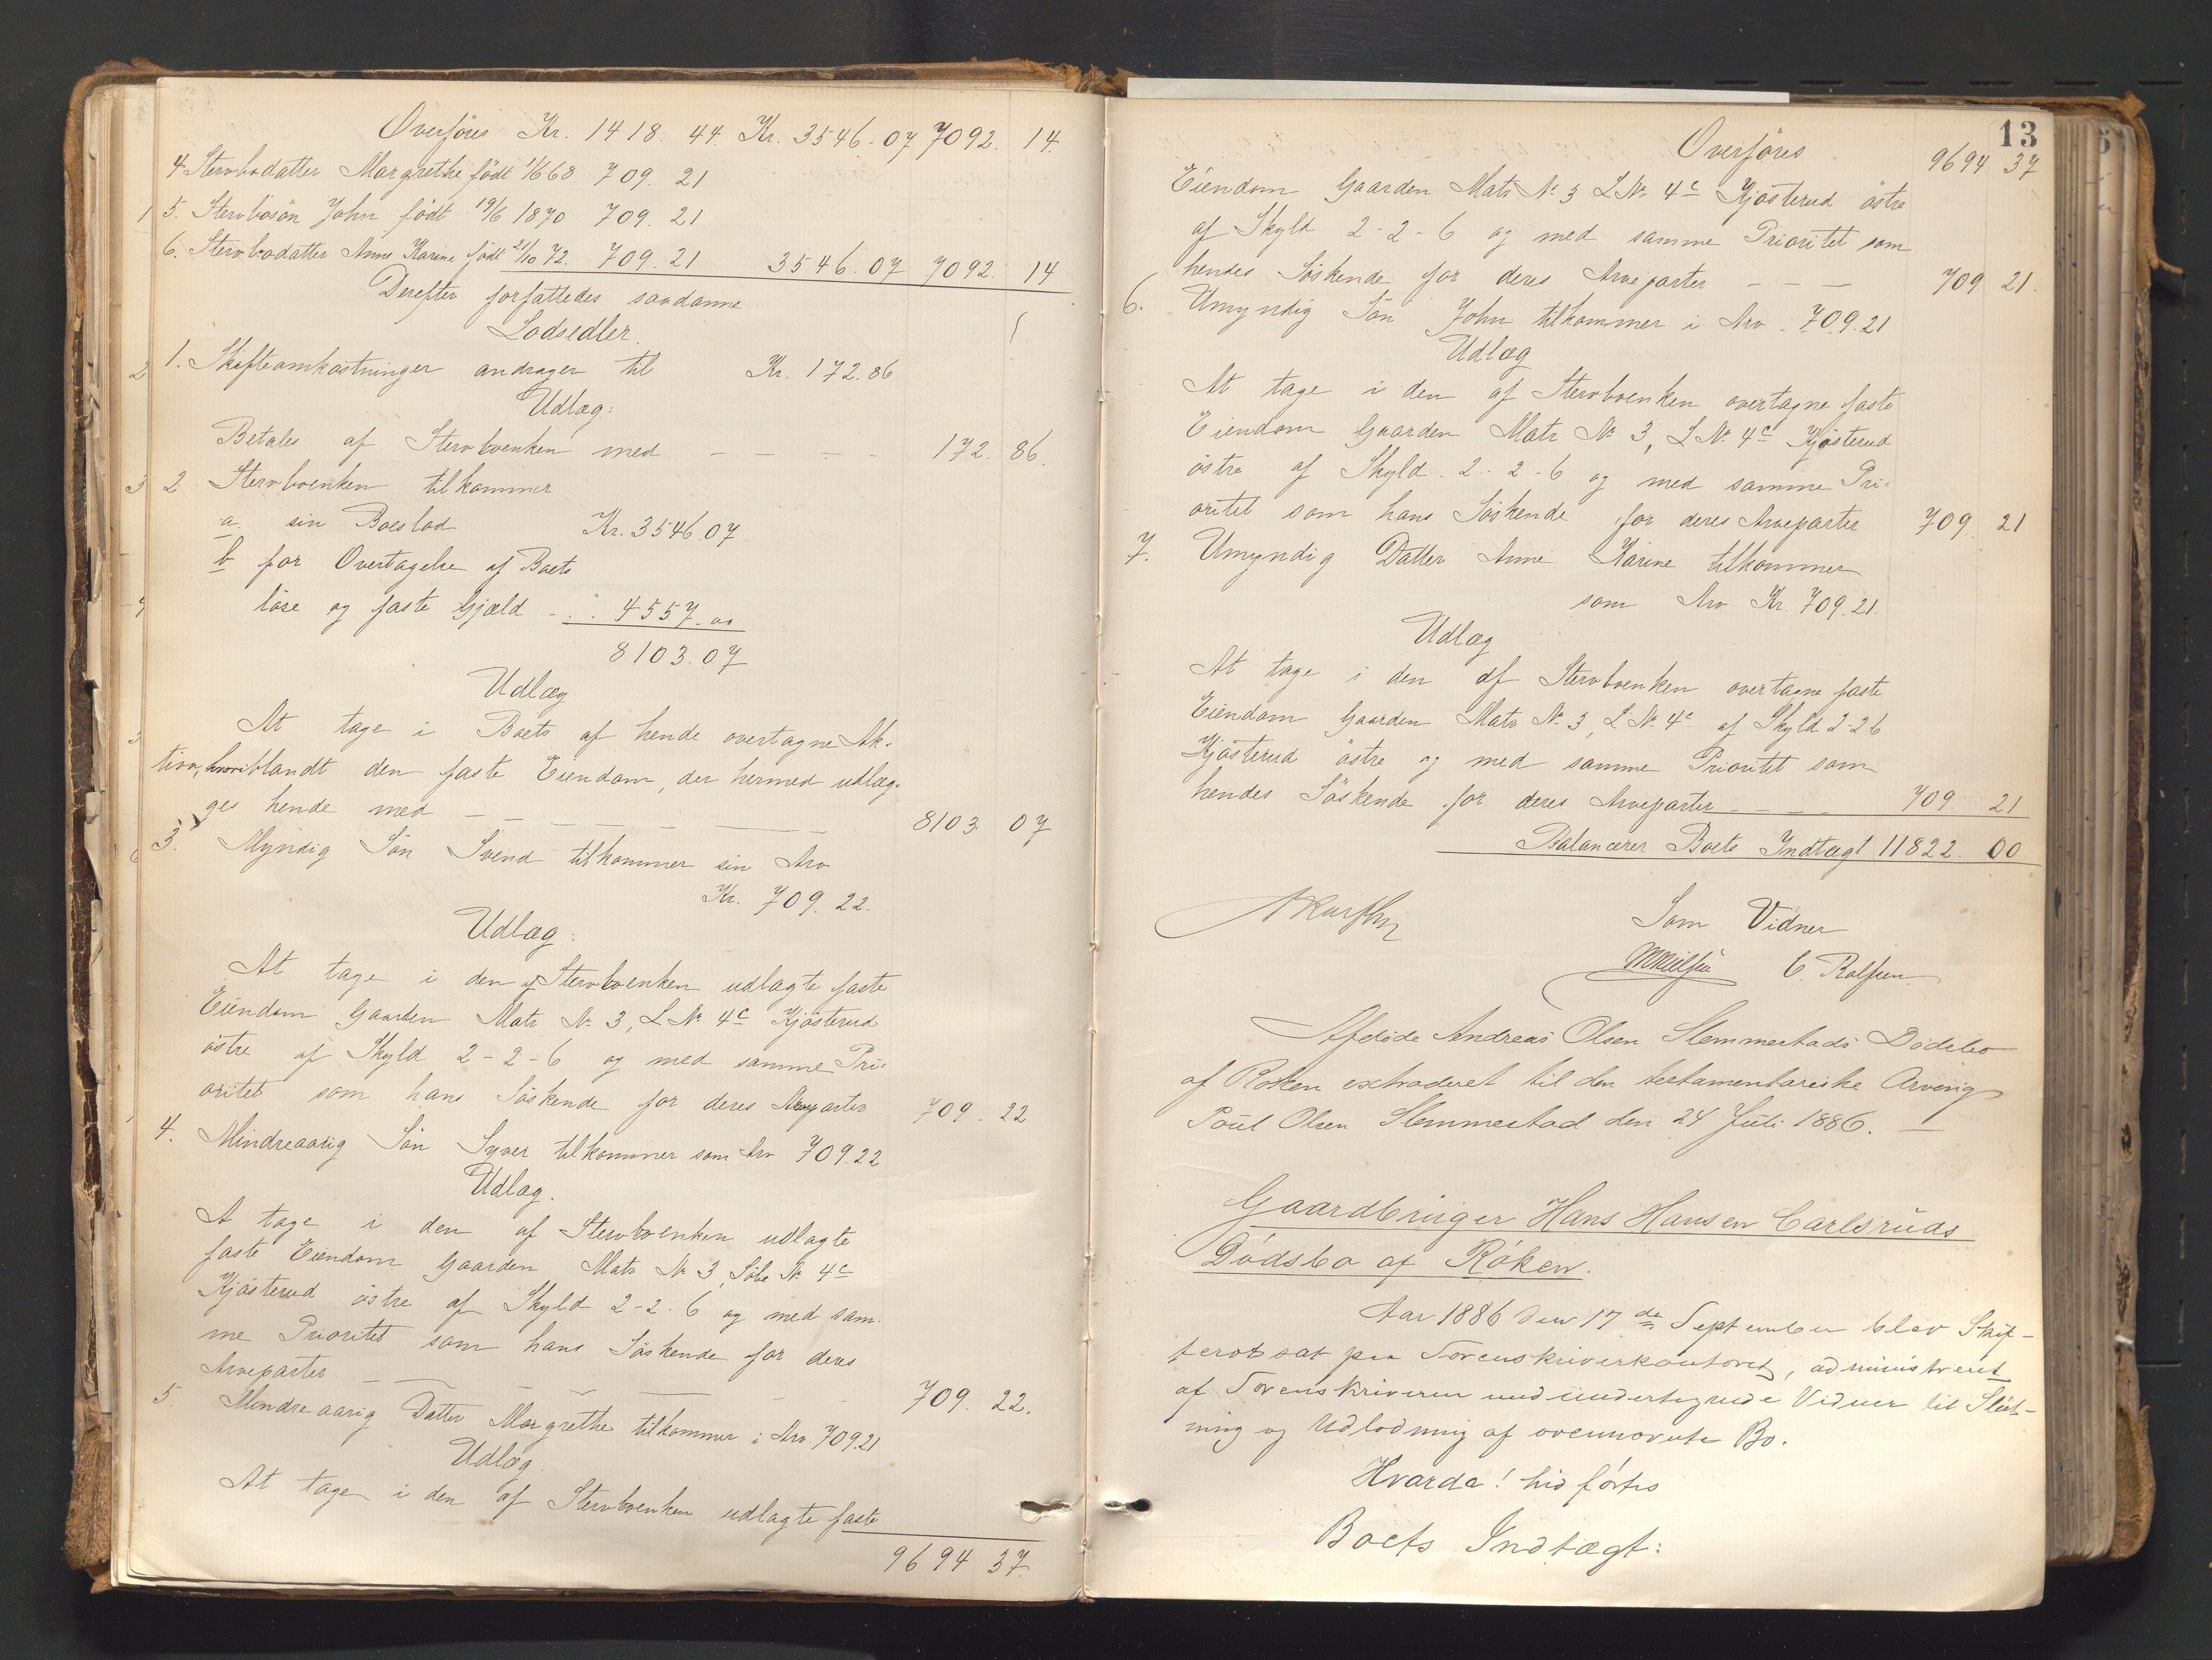 Overføres Kr. 1418. 44. Kr. 3546-07 7092. 14.
4. Stervbodatter Margrethe født 1/6 68 709. 21
5. Stervbosön John født 19/6 1870 709. 21
6. Stervbodatter Anne Karine født 21/10 72. 709. 21 3546. 07 7092. 14
Derefter forfattedes saadanne
Lodsedler.
1. Skifteomkostninger andrager til Kr. 172.86
Udlæg:
Betales af Stervboenken med - - - - 172. 86.
2 Stervboenken tilkommer
a. sin Boeslod Kr. 3546.07
b for Overtagelse af Boets
löse og faste Gjæld - . . 4557.00
8103.07
Udlæg
At tage i Boets af hende overtagne Ak-
tiva, hvoriblandt den faste Eiendom, der hermed udlæg-
ges hende med - - - - - - - 8103. 07
3. Myndig Sön Svend tilkommer sin Arv
Kr. 709. 22.
Udlæg:
At tage i den af Stervboenken udlagte faste
Eiendom Gaarden Matr No 3, L No 4c Kjösterud
östre af Skyld 2-2-6 og med samme Pri-
oritet som hans Söskende for deres Arveparter 709. 22
4. Mindreaarig Sön Syver tilkommer som Arv 709.22
Udlæg.
At tage i den af Stervboenken udlagte
faste Eiendom Gaarden Matr No 3, Löbe No 4c
Kjösterud östre af Skyld 2-2-6 og med sam-
me Prioritet som hans Söskende for deres
Arveparter - - - - - - 709. 22.
5. Mindreaarig Datter Margrethe tilkommer i Arv 709.21
Udlæg
At tage i den af Stervboenken udlagte faste
9694 37.
13
Overføres 9694 37
Eiendom Gaarden Matr No 3 L No 4c Kjösterud östre
af Skyld 2-2-6 og med samme Prioritet som
hendes Söskende for deres Arveparter - - - 709 21.
6. Umyndig Sön John tilkommer i Arv 709.21
Udlæg
At tage i den af Stervboenken overtagne faste
Eiendom Gaarden Matr No 3, L No 4c Kjösterud
östre af Skyld 2-2-6 og med samme Pri-
oritet som hans Söskende for deres Arveparter 709 21
7. Umyndig Datter Anne Karine tilkommer
som Arv Kr. 709.21.
Udlæg
At tage i den af Stervboenken overtagne faste
Eiendom Gaarden Matr No 3, L No 4c af Skyld 2-2-6
Kjösterud östre og med samme Prioritet som
hendes Söskende for deres Arveparter - - - 709 21
Balancerer Boets Indtægt 11822. 00
Som Vidner
C. Rolfsen
Afdøde Andreas Olsen Slemmestads Dødsbo
af Røken extraderet til den testamentariske Arving
Poul Olsen Slemmestad den 24 Juli 1886. -
Gaardbruger Hans Hansen Carlsruds
Dødsbo af Røken.
Aar 1886 den 17de September blev Skif-
teret sat paa Sorenskriverkontoret, administreret
af Sorenskriveren med undertegnede Vidner til Slut-
ning og Udlodning af ovennævnte Bo.
Hvorda! hid førtes
Boets Indtægt: